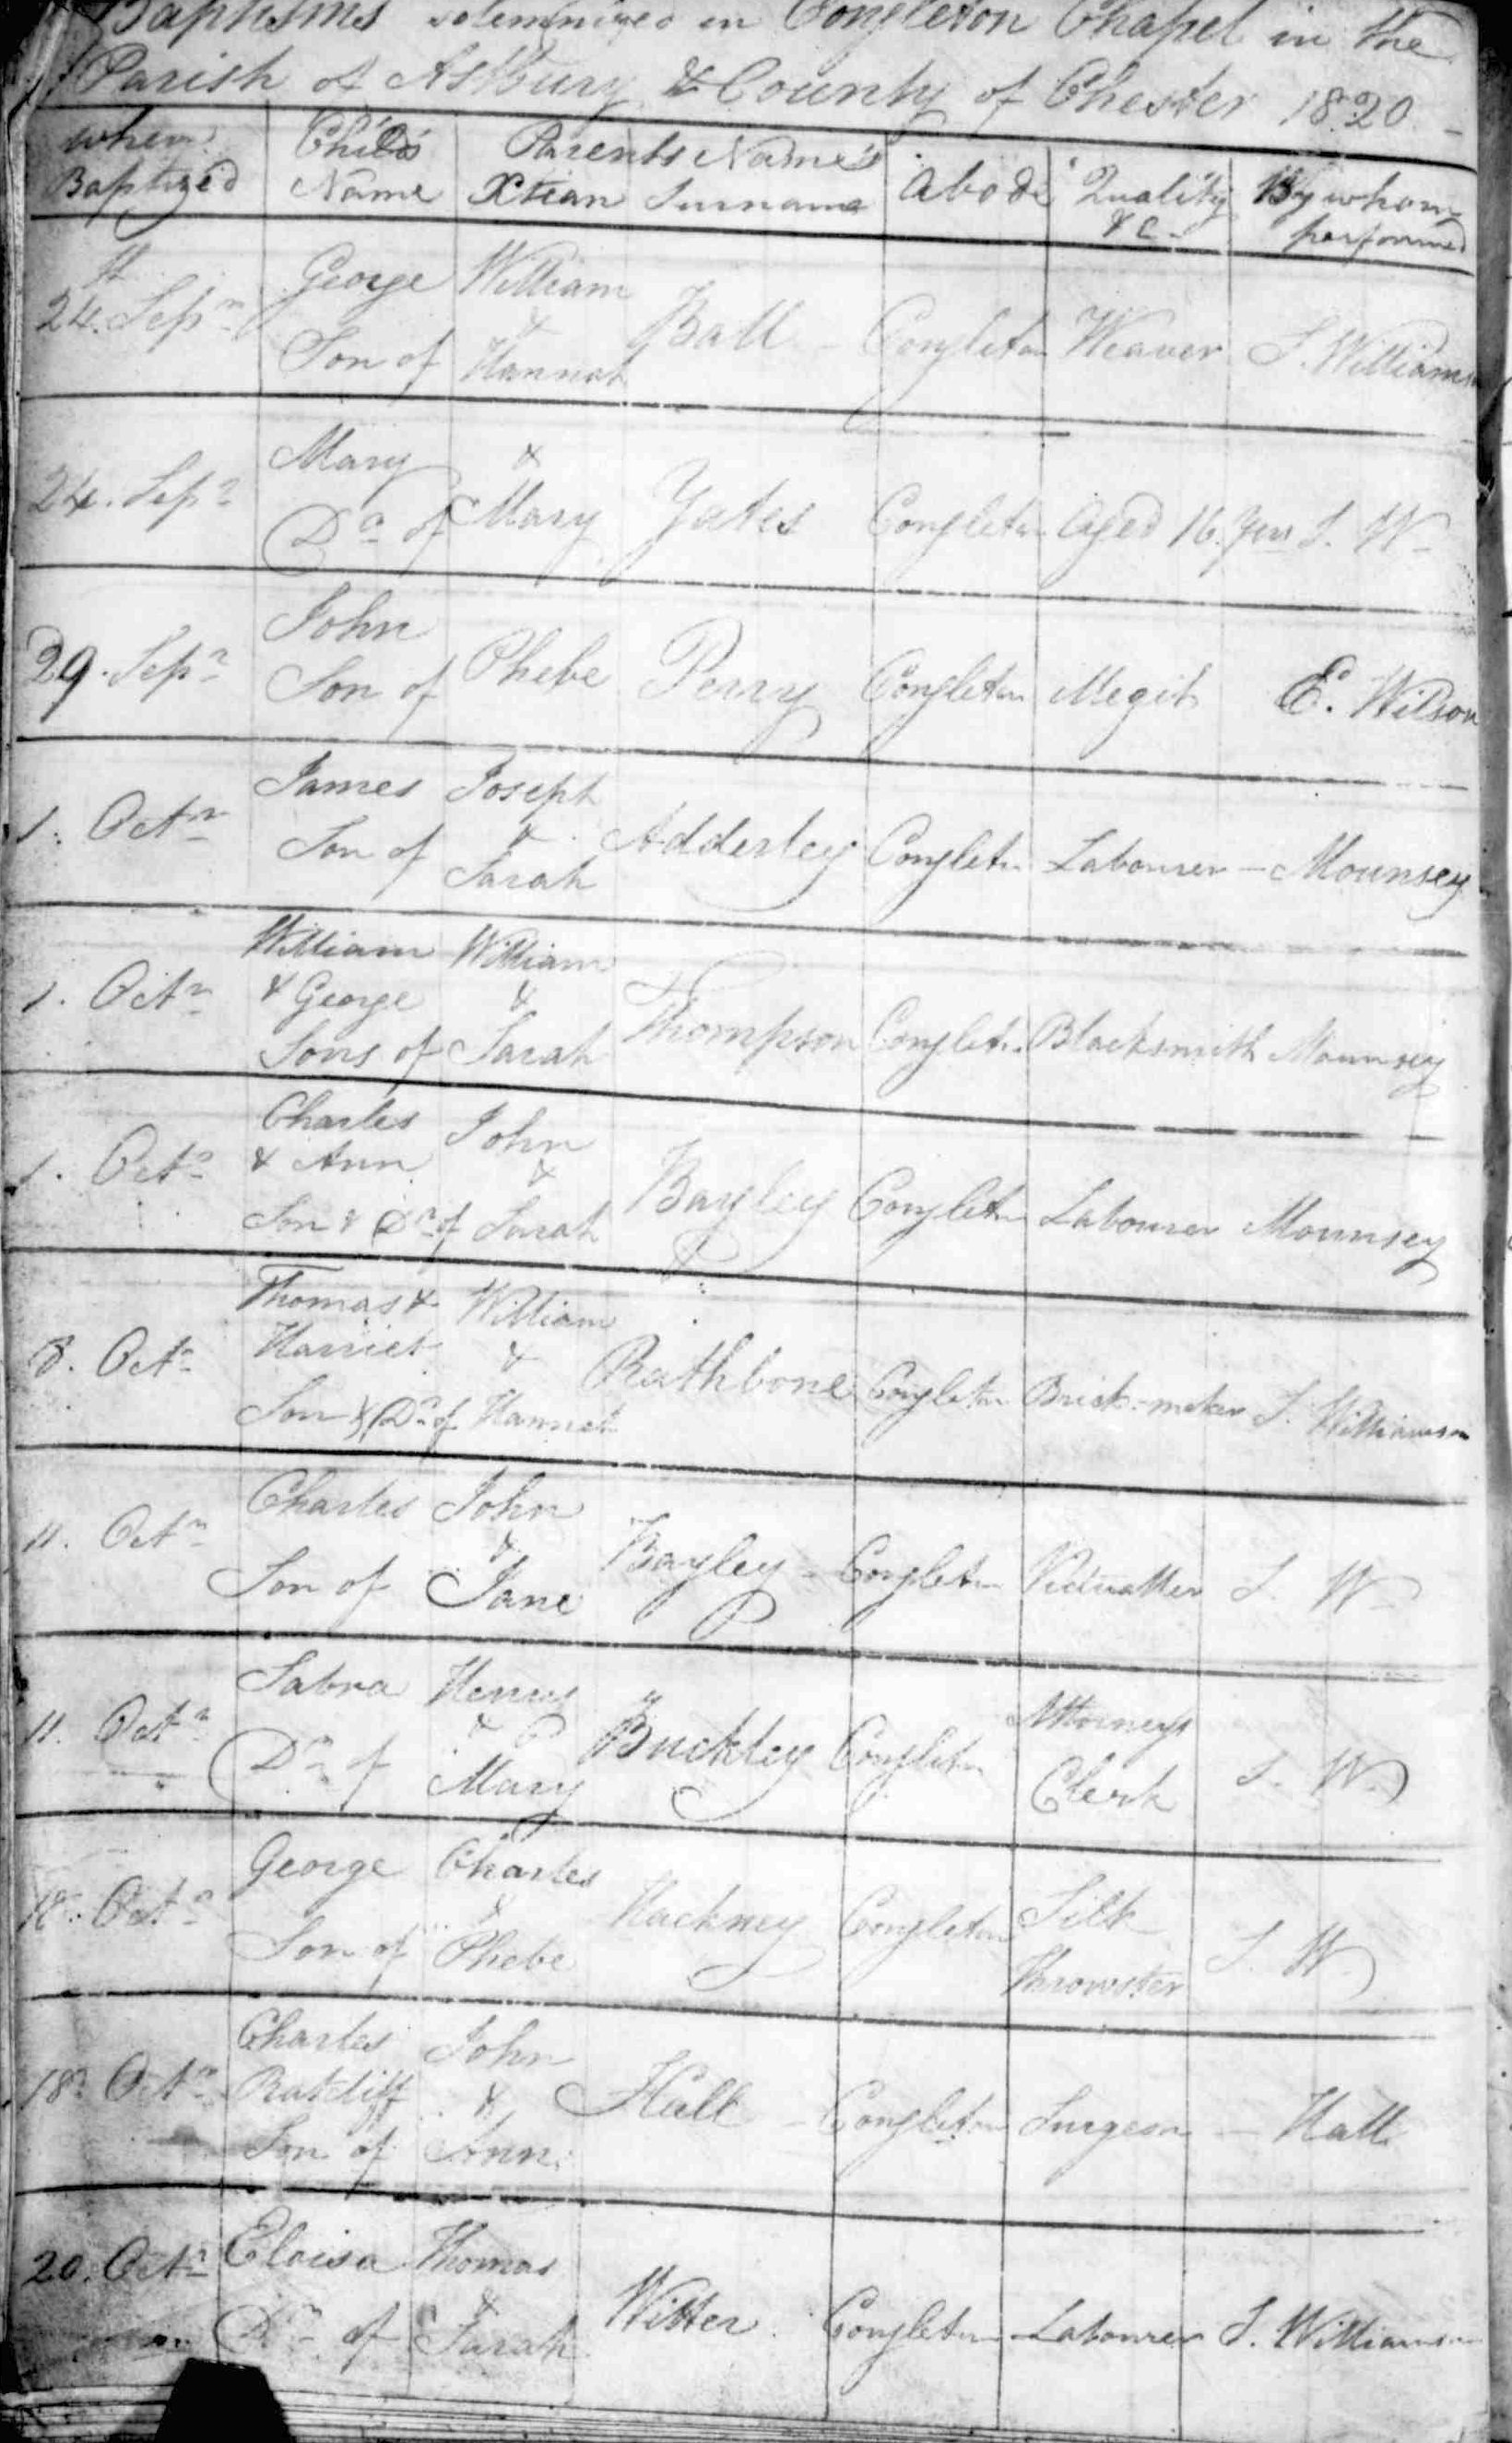 Baptisms solemnized in Congleton Chapel in the
Parish of Astbury & County of Chester 1820
when Baptized | Child's Name | Parents Names Xtian Surname | Abode | Quality &c | By whom performed
24. Sepr | George Son of | William & Hannah | Ball | Congleton | Weaver | S. Williamson
24. Sepr | Mary Dr of | & Mary | Yates | Congleton | Aged 16. Yrs | S. W
29. Sepr | John Son of | Phebe | Perry | Congleton | Illegit | E. Wilson
1. Octr | James Son of | Joseph & Sarah | Adderley | Congleton | Labourer | Mounsey
1. Octr | William & George Sons of | William & Sarah | Thompson | Congleton | Blacksmith | Mounsey
1. Octr | Charles & Ann Son & Dr of | John & Sarah | Bayley | Congleton | Labourer | Mounsey
8. Octr | Thomas & Harriet Son & Dr of | William & Hannah | Rathbone | Congleton | Brick-maker | S. Williamson
11. Octr | Charles Son of | John & Jane | Bayley | Congleton | Victualler | S. W
11. Octr | Sabra Dr of | Henry & Mary | Buckley | Congleton | Attorneys Clerk | S. W
Octr | George Son of | Charles & Phebe | Hackney | Congleton | Silk Throwster | S. W
18. Octr | Charles Ratcliff Son of | John & Ann | Hall | Congleton | Surgeon | Hall
20. Octr | Eloisa Dr of | Thomas & Sarah | Witter | Congleton | Labourer | S. Williamson